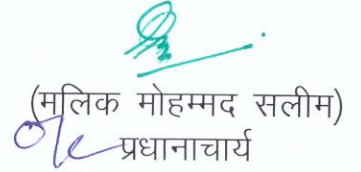 (मलिक मोहम्मद सलीम)
प्रधानाचार्य